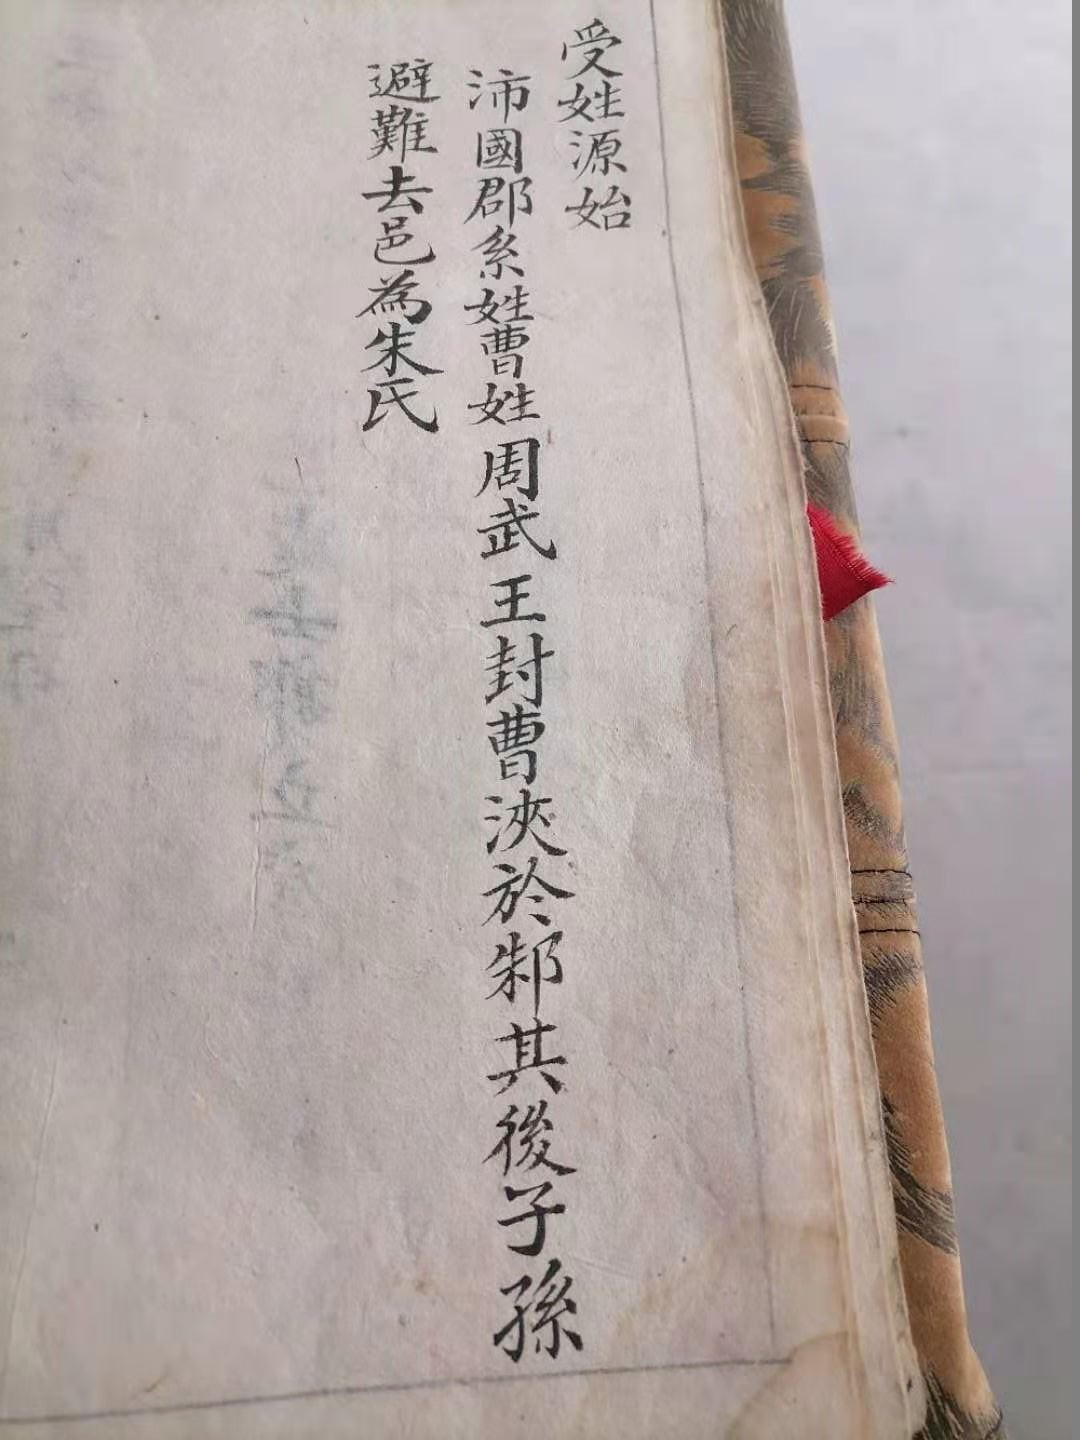 受姓源始
沛國郡系姓曹姓周武王封曹浹於邾其後子孫
避難去邑為朱氏